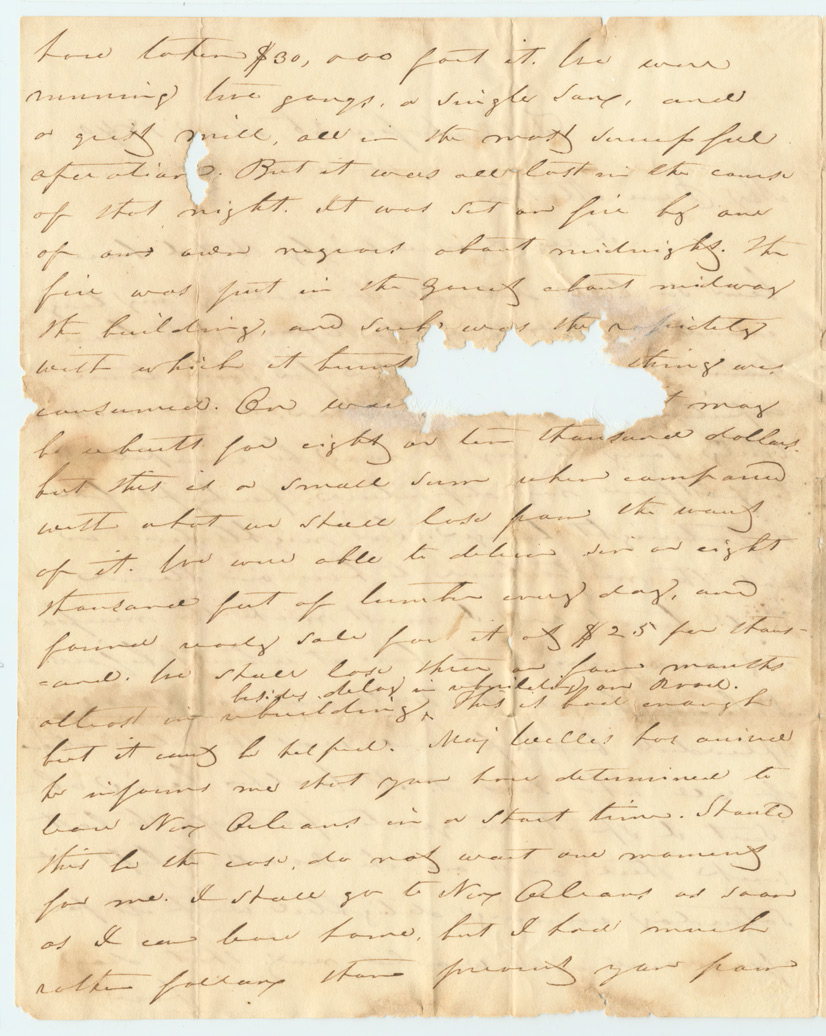 have taken $30,000 for it. We were
running two gangs, a single saw, and
a grist mill, all in the most successful
operation. But it was all lost in the course
of that night. It was set on fire by one
of our own negroes about midnight. The
fire was put in the about midway
the building, and such was the rapidity
with which it burnt thing was
consumed. Our may
be rebuilt for eight or ten thousand dollars.
but this is a small sum when compared
with what we shall lose from the want
of it. We were able to deliver six or eight
thousand feet of lumber every day, and
found ready sale for it at $25 per thous-
=and. We shall lose three or four months
besides delay in rebuilding our Road.
at least in rebuilding, This is bad enough
but it cant be helped. Maj Welles has arrived
he informs me that you have determined to
leave New Orleans in a short time. Should
this be the case, do not wait one moment
for me. I shall go to New Orleans as soon
as I can leave home, but I had much
rather follow than prevent you from